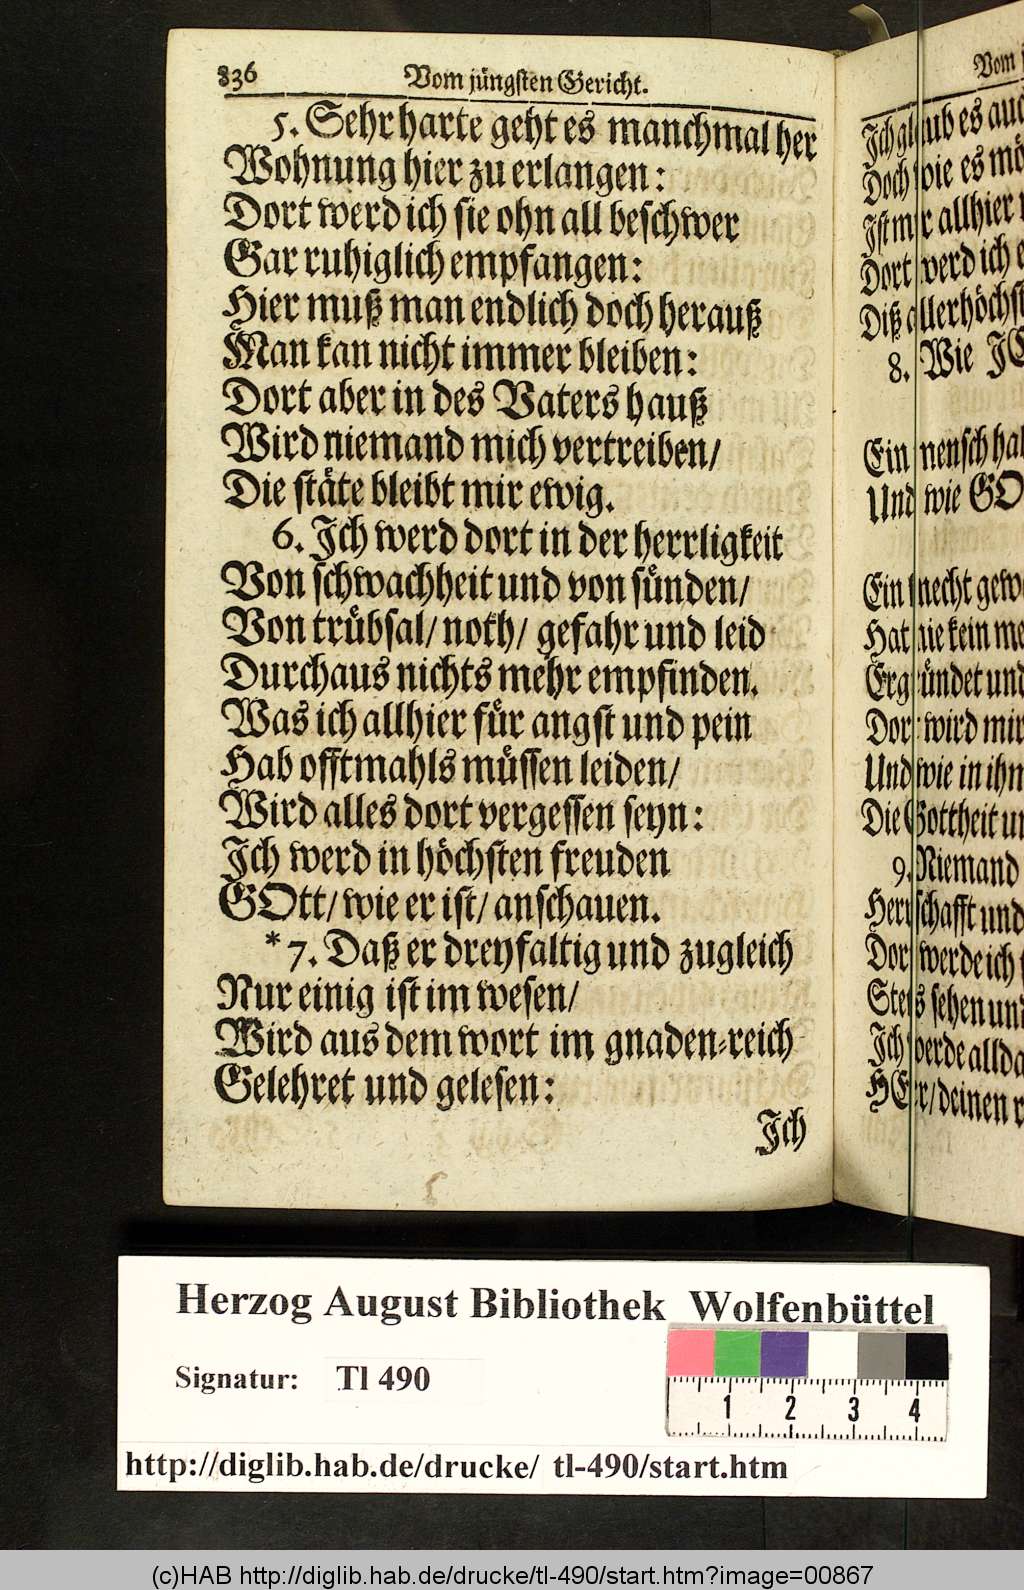 836 Vom jüngsten Gericht.
5. Sehr harte geht es manchmal her
Wohnung hier zu erlangen:
Dort werd ich sie ohn all beschwer
Gar ruhiglich empfangen:
Hier muß man endlich doch herauß
Man kan nicht immer bleiben:
Dort aber in des Vaters hauß
Wird niemand mich vertreiben/
Die stäte bleibt mir ewig.
6. Ich werd dort in der herrligkeit
Von schwachheit und von sünden/
Von trübsal/ noth/ gefahr und leid
Durchaus nichts mehr empfinden.
Was ich allhier für angst und pein
Hab offtmahls müssen leiden/
Wird alles dort vergessen seyn:
Ich werd in höchsten freuden
GOtt/ wie er ist/ anschauen.
* 7. Daß er dreyfaltig und zugleich
Nur einig ist im wesen/
Wird aus dem wort im gnaden-reich
Gelehret und gelesen:
Ich
Vom
Ich glaub es auch
Doch wie es
Ist mir allhier
Dort werd ich
Diß allerhöchst
8. Wie
Ein mensch
Und wie GO
Ein knecht
Hat nie kein
Ergründet und
Dort wird mir
Und wie in ihm
Die Gottheit
9. Niemand
Herrschafft und
Dort werde ich
Stets sehen und
Ich werde allda
HErr/ deinen
Herzog August Bibliothek Wolfenbüttel
Signatur: Tl 490
1 2 3 4
http://diglib.hab.de/drucke/ tl-490/start.htm
(c)HAB http://diglib.hab.de/drucke/tl-490/start.htm?image=00867